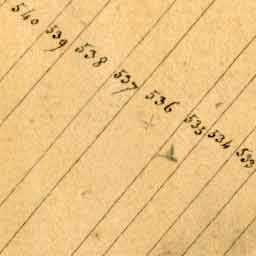 540
539
538
537
536
535
534
533